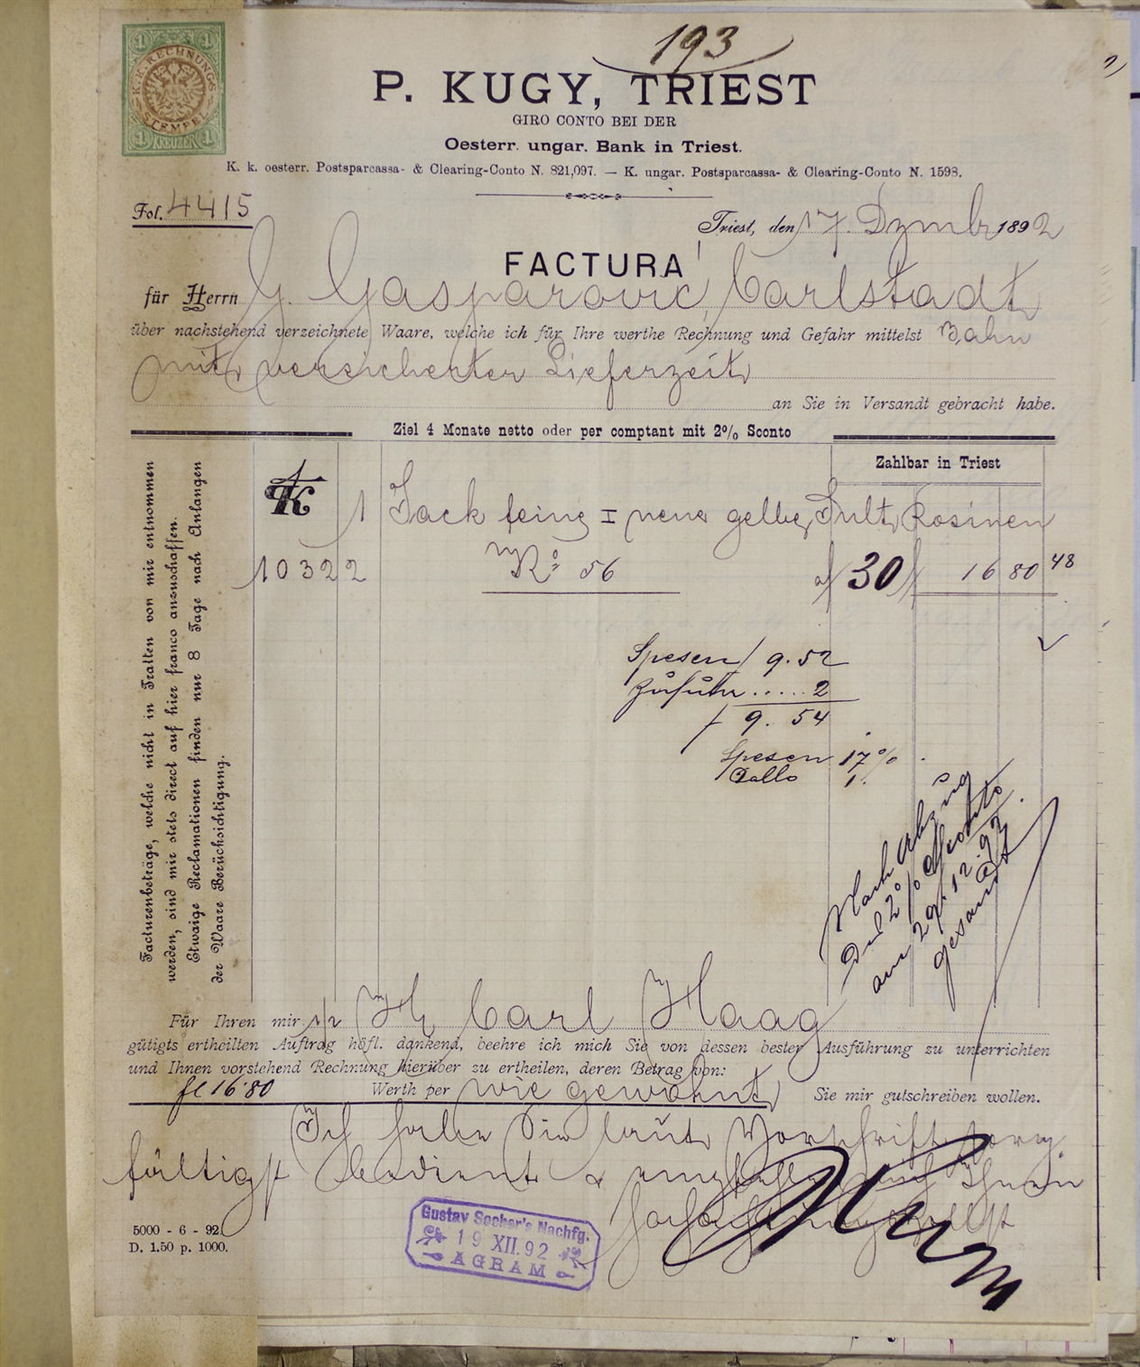 193
K.K. RECHNUNGS STEMPEL
1 1
1 KREUZER 1
P. KUGY, TRIEST
GIRO CONTO BEI DER
Oesterr. ungar. Bank in Triest.
K. k. oesterr. Postsparcassa- & Clearing-Conto N. 821,097. — K. ungar. Postsparcassa- & Clearing-Conto N. 1598.
Fol. 4415
Triest, den 17. Dzmbr 1892
FACTURA
für Herrn G. Gasparovic, Carlstadt
über nachstehend verzeichnete Waare, welche ich für Ihre werthe Rechnung und Gefahr mittelst Bahn
mit versicherter Lieferzeit
an Sie in Versandt gebracht habe.
Ziel 4 Monate netto oder per comptant mit 2% Sconto
Zahlbar in Triest
Facturenbeträge, welche nicht in Tratten von mir entnommen
werden, sind mir stets direct auf hier franco anzuschaffen.
Etwaige Reclamationen finden nur 8 Tage nach Anlangen
der Waare Berücksichtigung.
K
1 Sack feine I neue gelbe Sult. Rosinen
10322 Ko 56 a f 30 f 16 80 48
Spesen f 9.52
Zufuhr ..... 2
f 9. 54
Spesen 17%
Dallo 1.
Nach Abzug
Del 2% Sconto
am 29.12.92
gesandt
Für Ihren mir d/ H. Carl Haag
gütigts ertheilten Auftrag höfl. dankend, beehre ich mich Sie von dessen bester Ausführung zu unterrichten
und Ihnen vorstehend Rechnung hierüber zu ertheilen, deren Betrag von:
fl 16·80 Werth per wie gewohnt Sie mir gutschreiben wollen.
Ich habe Sie laut Vorschrift sorg
fältigst bedient & empfehle mich Ihnen
hochachtungsvollst
Gustav Secher's Nachfg.
19 XII. 92
AGRAM
5000 - 6 - 92.
D. 1.50 p. 1000.